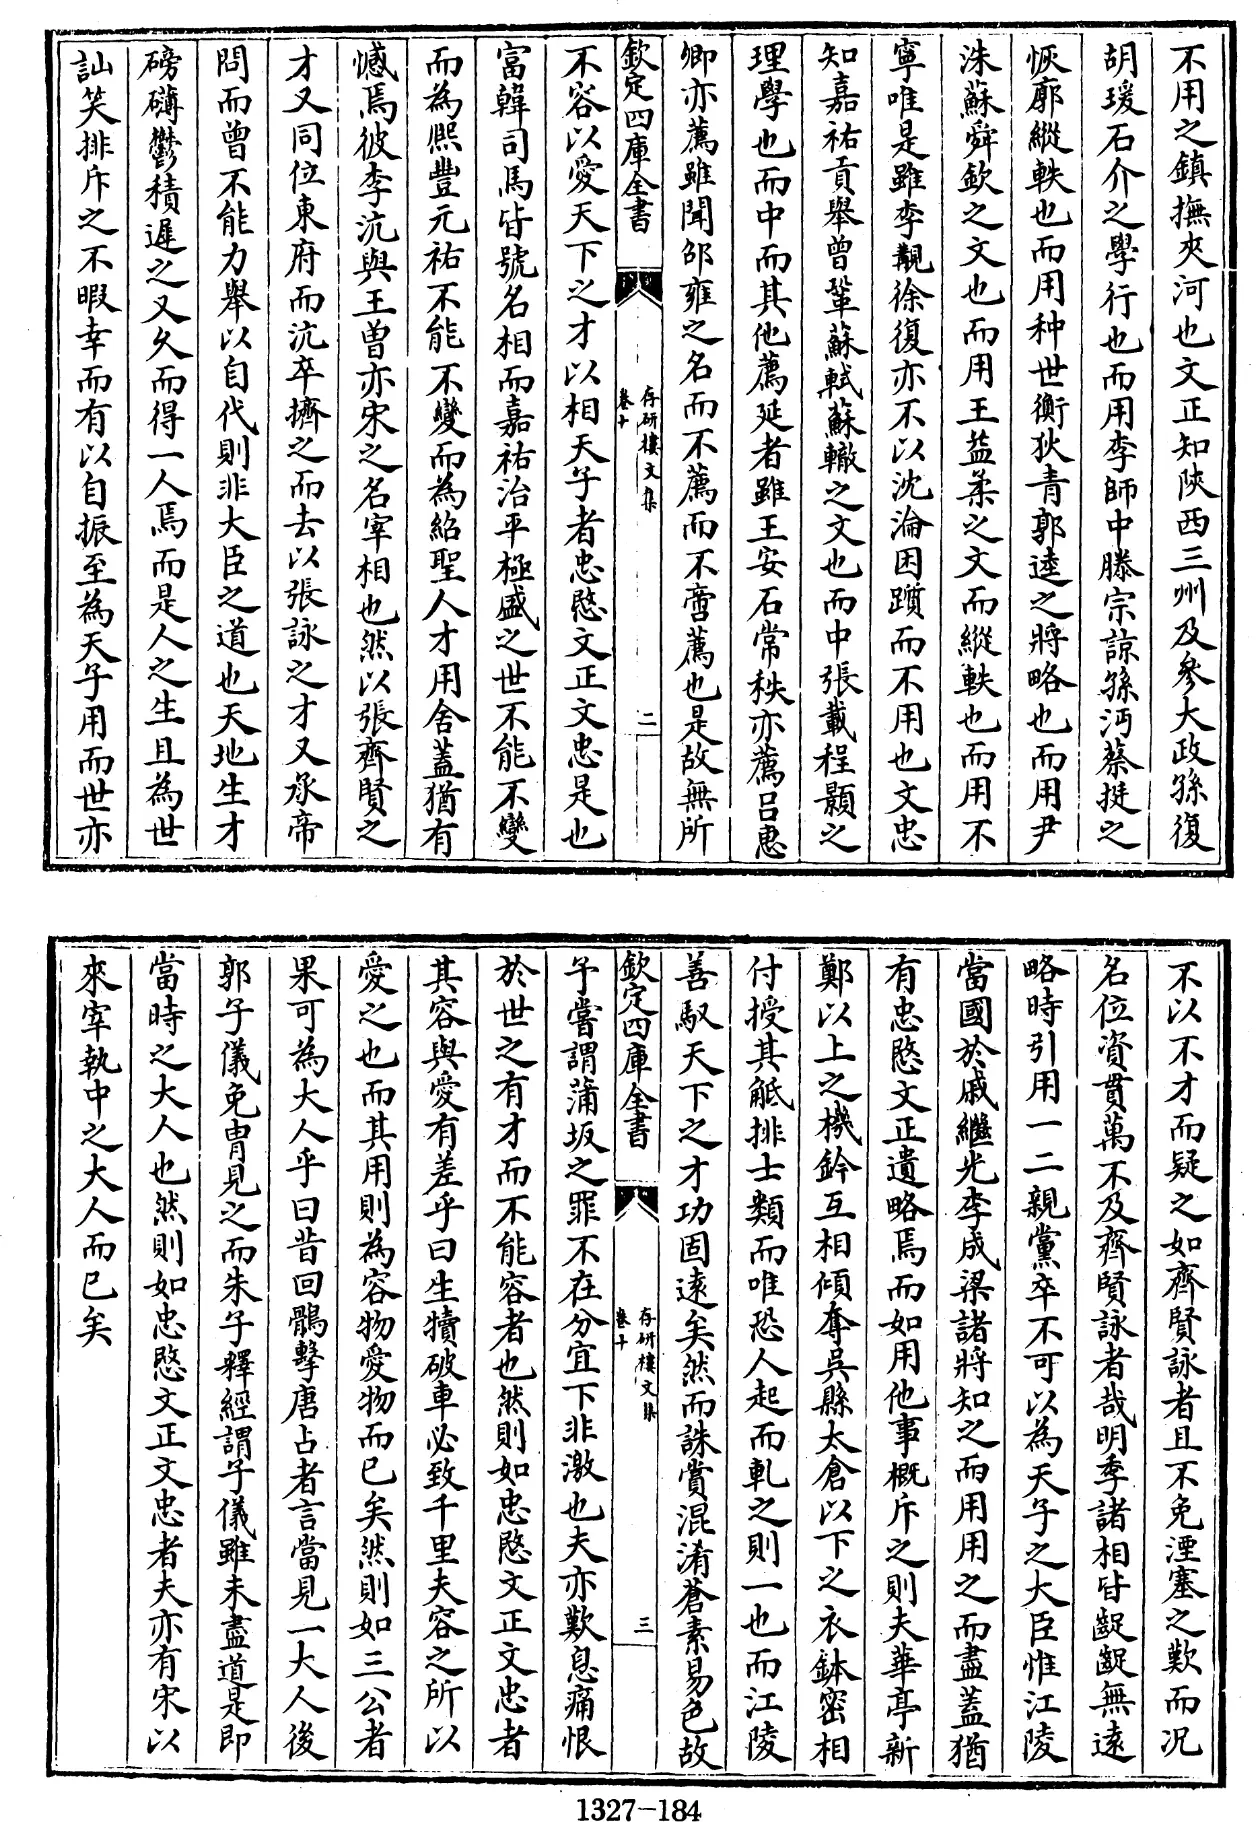 不用之鎮撫夾河也文正知陝西三州及參大政孫復
胡瑗石介之學行也而用李師中滕宗諒孫沔蔡挺之
恢廓縱軼也而用种世衡狄青郭逵之將略也而用尹
洙蘇舜欽之文也而用王益柔之文而縱軼也而用不
寧唯是雖李覯徐復亦不以沈淪困躓而不用也文忠
知嘉祐貢舉曾鞏蘇軾蘇轍之文也而中張載程顥之
理學也而中而其他薦延者雖王安石常秩亦薦呂惠
卿亦薦雖聞邵雍之名而不薦而不啻薦也是故無所
欽定四庫全書
存研樓文集
卷十
二
不容以愛天下之才以相天子者忠愍文正文忠是也
富韓司馬皆號名相而嘉祐治平極盛之世不能不變
而為熙豐元祐不能不變而為紹聖人才用舍蓋猶有
憾焉彼李沆與王曾亦宋之名宰相也然以張齊賢之
才又同位東府而沆卒擠之而去以張詠之才又承帝
問而曾不能力舉以自代則非大臣之道也天地生才
磅礴鬱積遲之又久而得一人焉而是人之生且為世
訕笑排斥之不暇幸而有以自振至為天子用而世亦
不以不才而疑之如齊賢詠者且不免湮塞之歎而況
名位資貫萬不及齊賢詠者哉明季諸相皆齪齪無遠
略時引用一二親黨卒不可以為天子之大臣惟江陵
當國於戚繼光李成梁諸將知之而用用之而盡蓋猶
有忠愍文正遺略焉而如用他事概斥之則夫華亭新
鄭以上之機鈐互相傾奪吳縣太倉以下之衣鉢密相
付授其觝排士類而唯恐人起而軋之則一也而江陵
善馭天下之才功固遠矣然而誅賞混淆蒼素易色故
欽定四庫全書
存研樓文集
卷十
三
予嘗謂蒲坂之罪不在分宜下非激也夫亦歎息痛恨
於世之有才而不能容者也然則如忠愍文正文忠者
其容與愛有差乎曰生犢破車必致千里夫容之所以
愛之也而其用則為容物愛物而已矣然則如三公者
果可為大人乎曰昔回鶻擊唐占者言當見一大人後
郭子儀免冑見之而朱子釋經謂子儀雖未盡道是即
當時之大人也然則如忠愍文正文忠者夫亦有宋以
來宰執中之大人而已矣
1327-184